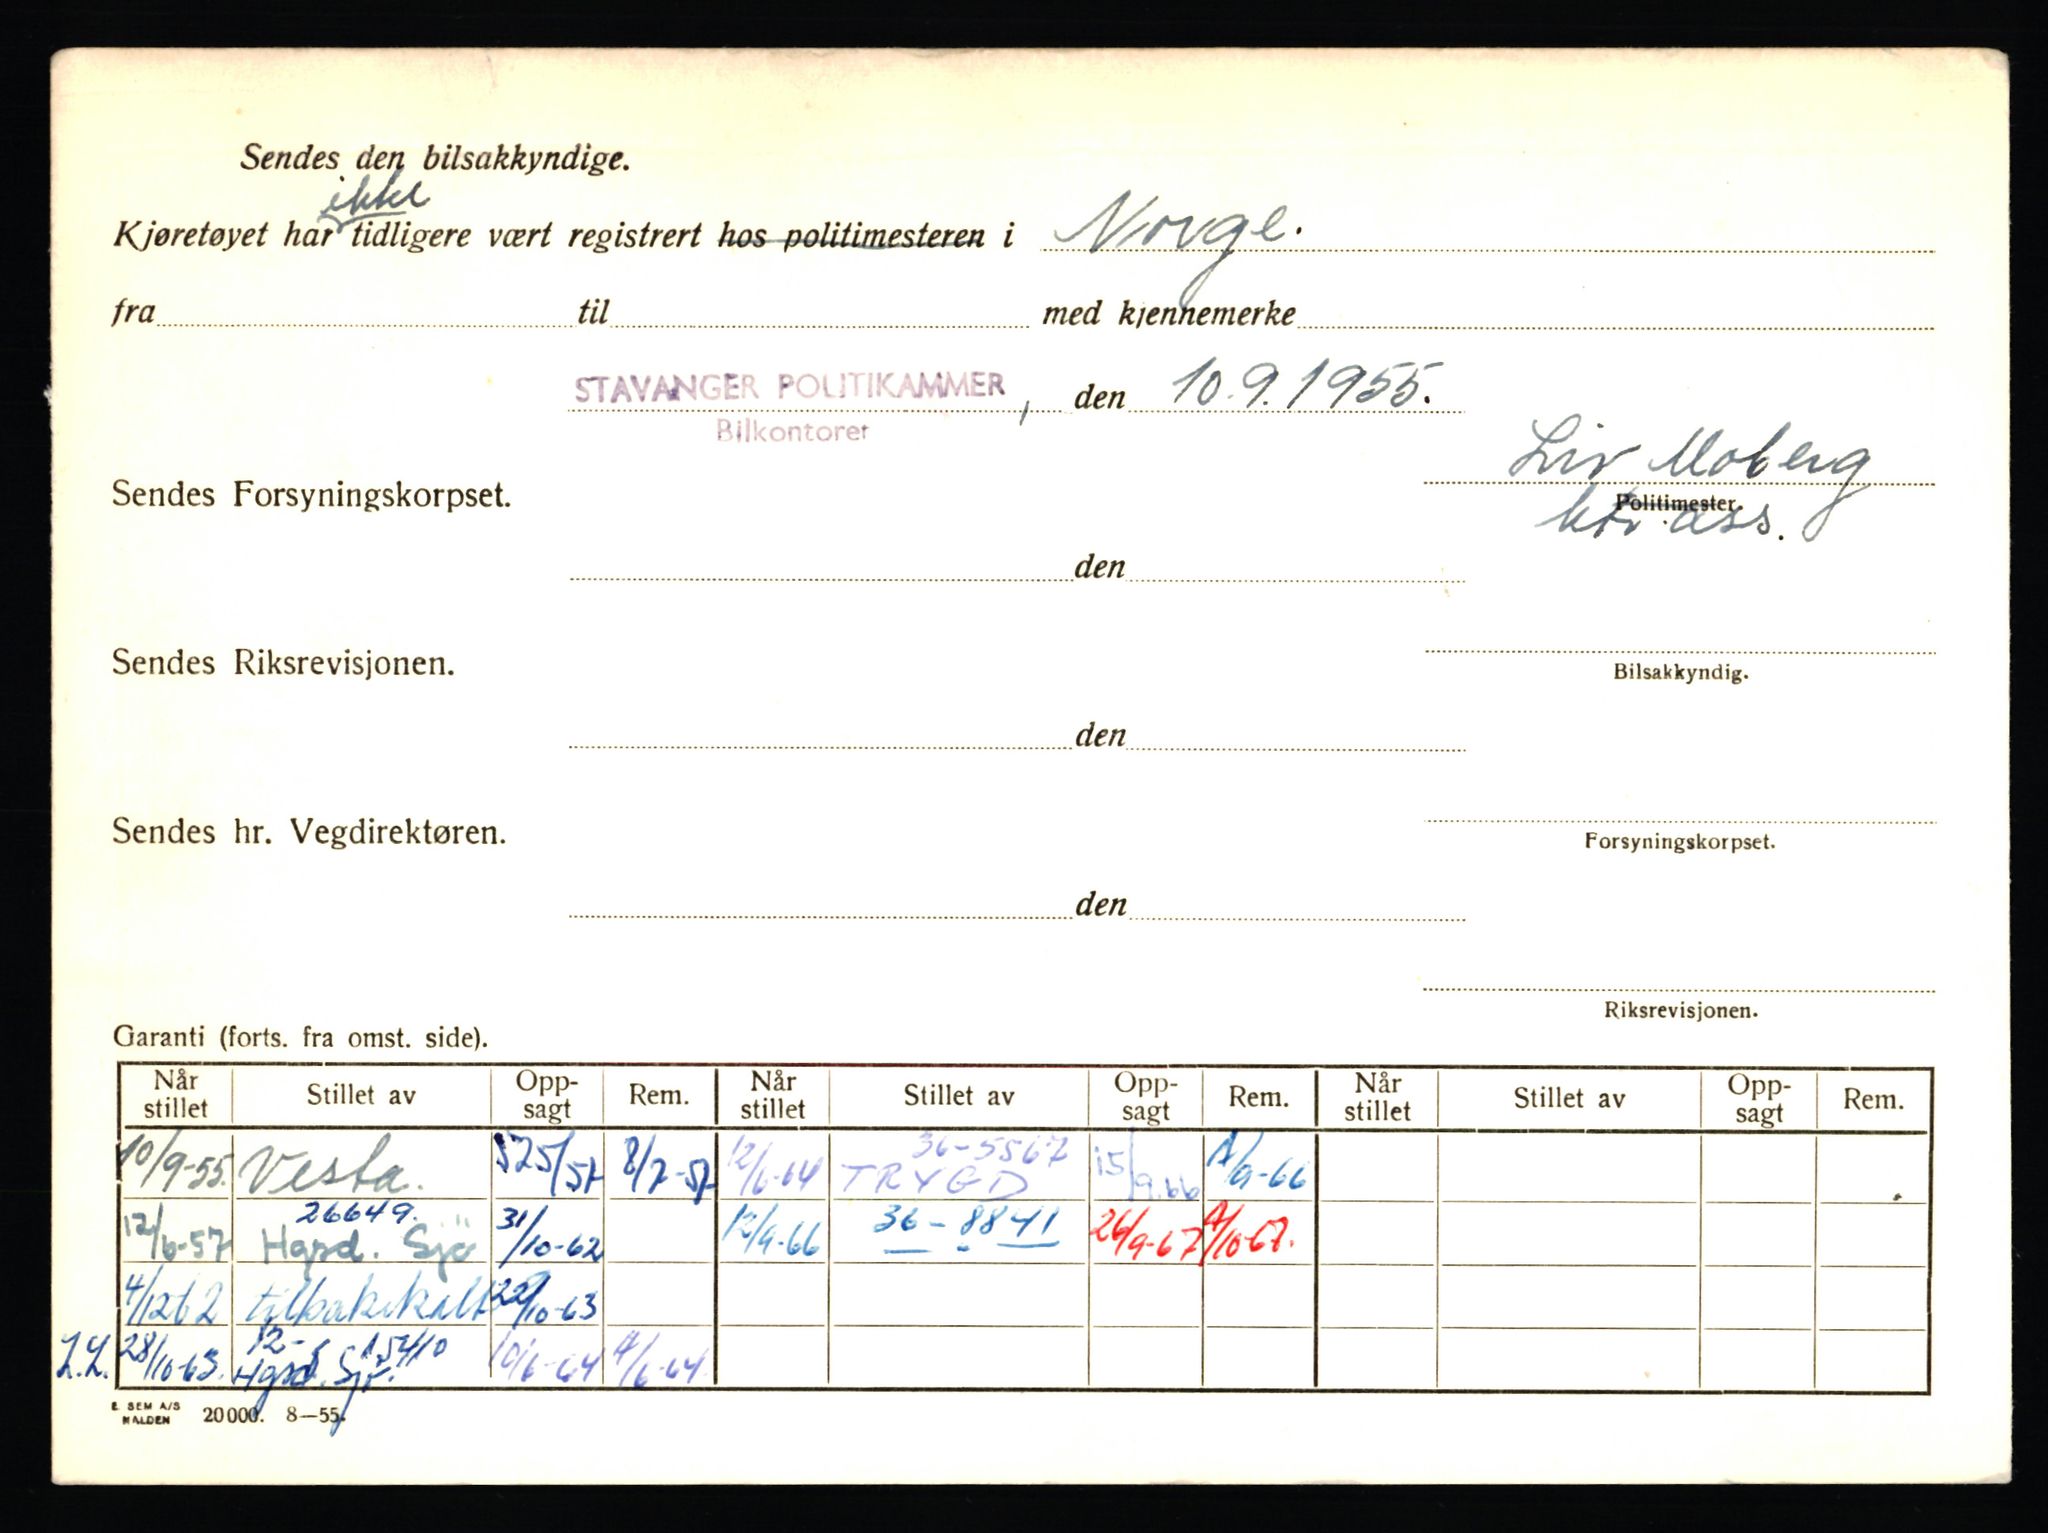 Sendes den bilsakkyndige.
ikke
Kjøretøyet har tidligere vært registrert hos politimesteren i Norge.
fra til med kjennemerke
STAVANGER POLITIKAMMER, den 10.9.1955.
Bilkontoret
Liv Moberg
Sendes Forsyningskorpset. Politimester.
ktr. ass.
den
Sendes Riksrevisjonen. Bilsakkyndig.
den
Sendes hr. Vegdirektøren. Forsyningskorpset.
den
Riksrevisjonen.
Garanti (forts. fra omst. side).
Når stillet Stillet av Opp-sagt Rem. Når stillet Stillet av Opp-sagt Rem. Når stillet Stillet av Opp-sagt Rem.
10/9-55. Vesta. 8/7-57 12/6-64 36-5567 TRYGD 15/9.66 /9-66
12/6-57 26649. Hgsd. Sjö 31/10-62 12/9-66 36-8841 26/9-67 /10-67.
4/12 62 tilbakekalt 22/10-63
L.L. 28/10-63. 12-15410 Hgsd. Sjø. 10/6-64 /6-64
E. SEM A/S
HALDEN 20000. 8—55.